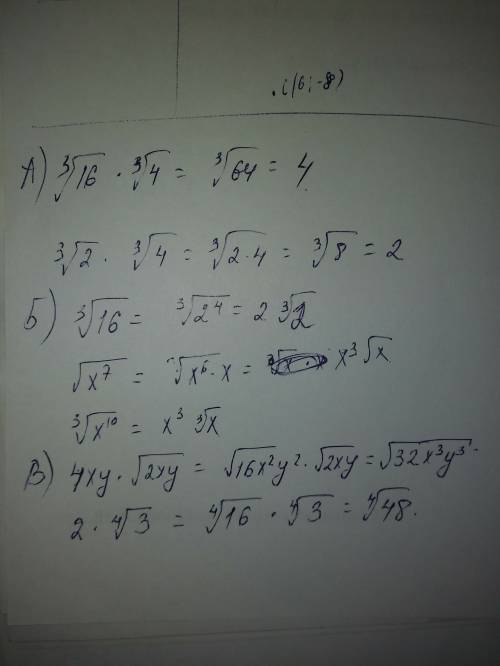 .C(6;-8)
А) ∛16 · ∛4 = ∛64 = 4
∛2 · ∛4 = ∛2·4 = ∛8 = 2
Б) ∛16 = ∛2⁴ = 2 ∛2
√x⁷ = √x⁶·x = x³√x
∛x¹⁰ = x³ ∛x
В) 4xy · √2xy = √16x²y² · √2xy = √32x³y³ ·
2 · ∜3 = ∜16 · ∜3 = ∜48.